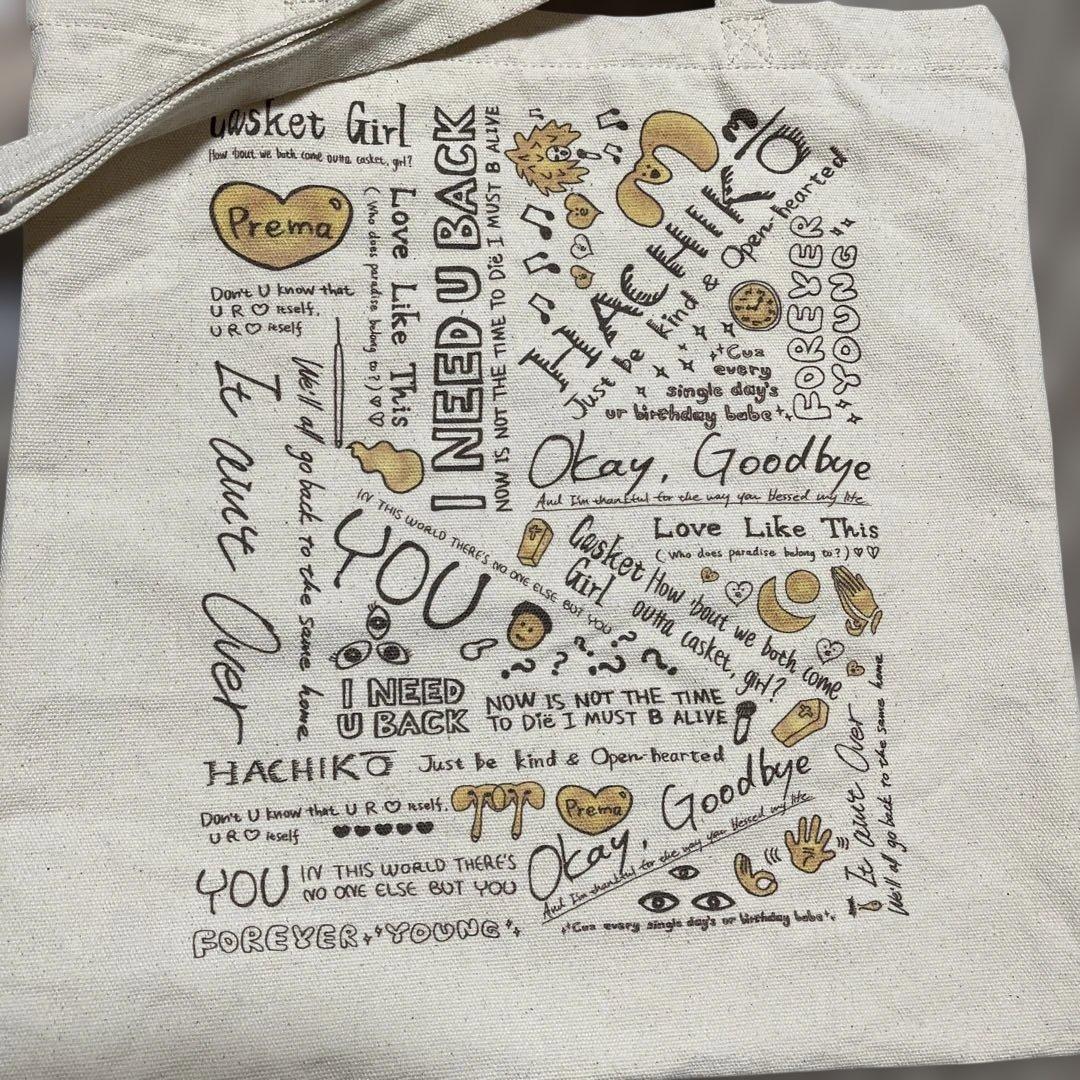 Casket Girl
How 'bout we both come outta casket, girl?
Prema
Don't U know that
U R ♡ itself,
U R ♡ itself
Love Like This
(Who does paradise belong to?) ♡♡
I NEED U BACK
NOW IS NOT THE TIME TO Dië I MUST B ALIVE
HACHIKŌ
Just be kind & Open-hearted
FOREVER
YOUNG
'Cuz
every
single day's
ur birthday babe
It ain't Over
We'll all go back to the same home
Okay, Goodbye
And I'm thankful for the way you blessed my life
YOU
IN THIS WORLD THERE'S NO ONE ELSE BUT YOU
Casket
Girl
How 'bout we both come
outta casket, girl?
Love Like This
(Who does paradise belong to?) ♡♡
I NEED
U BACK
NOW IS NOT THE TIME
TO Dië I MUST B ALIVE
HACHIKŌ
Just be kind & Open-hearted
Don't U know that U R ♡ itself,
U R ♡ itself
Prema
Okay, Goodbye
And I'm thankful for the way you blessed my life
It ain't Over
We'll all go back to the same home
YOU
IN THIS WORLD THERE'S
NO ONE ELSE BUT YOU
FOREVER YOUNG
'Cuz every single day's ur birthday babe